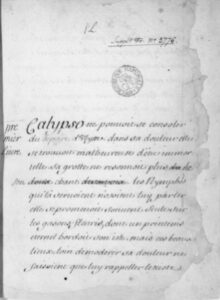 Calypso ne pouvoit se consoler
du depart d'Ulysse dans sa douleur elle
se trouvoit malheureuse d'etre immor
telle sa grotte ne resonnoit plus de
son chant les Nymphes
qui la servoient n'osoient luy parler
elle se promenoit souvent seule sur
les gazons fleuris, dont un printems
eternel bordoit son isle. mais ces beaux
lieux loin de moderer sa douleur ne
faisoient que luy rappeller le triste